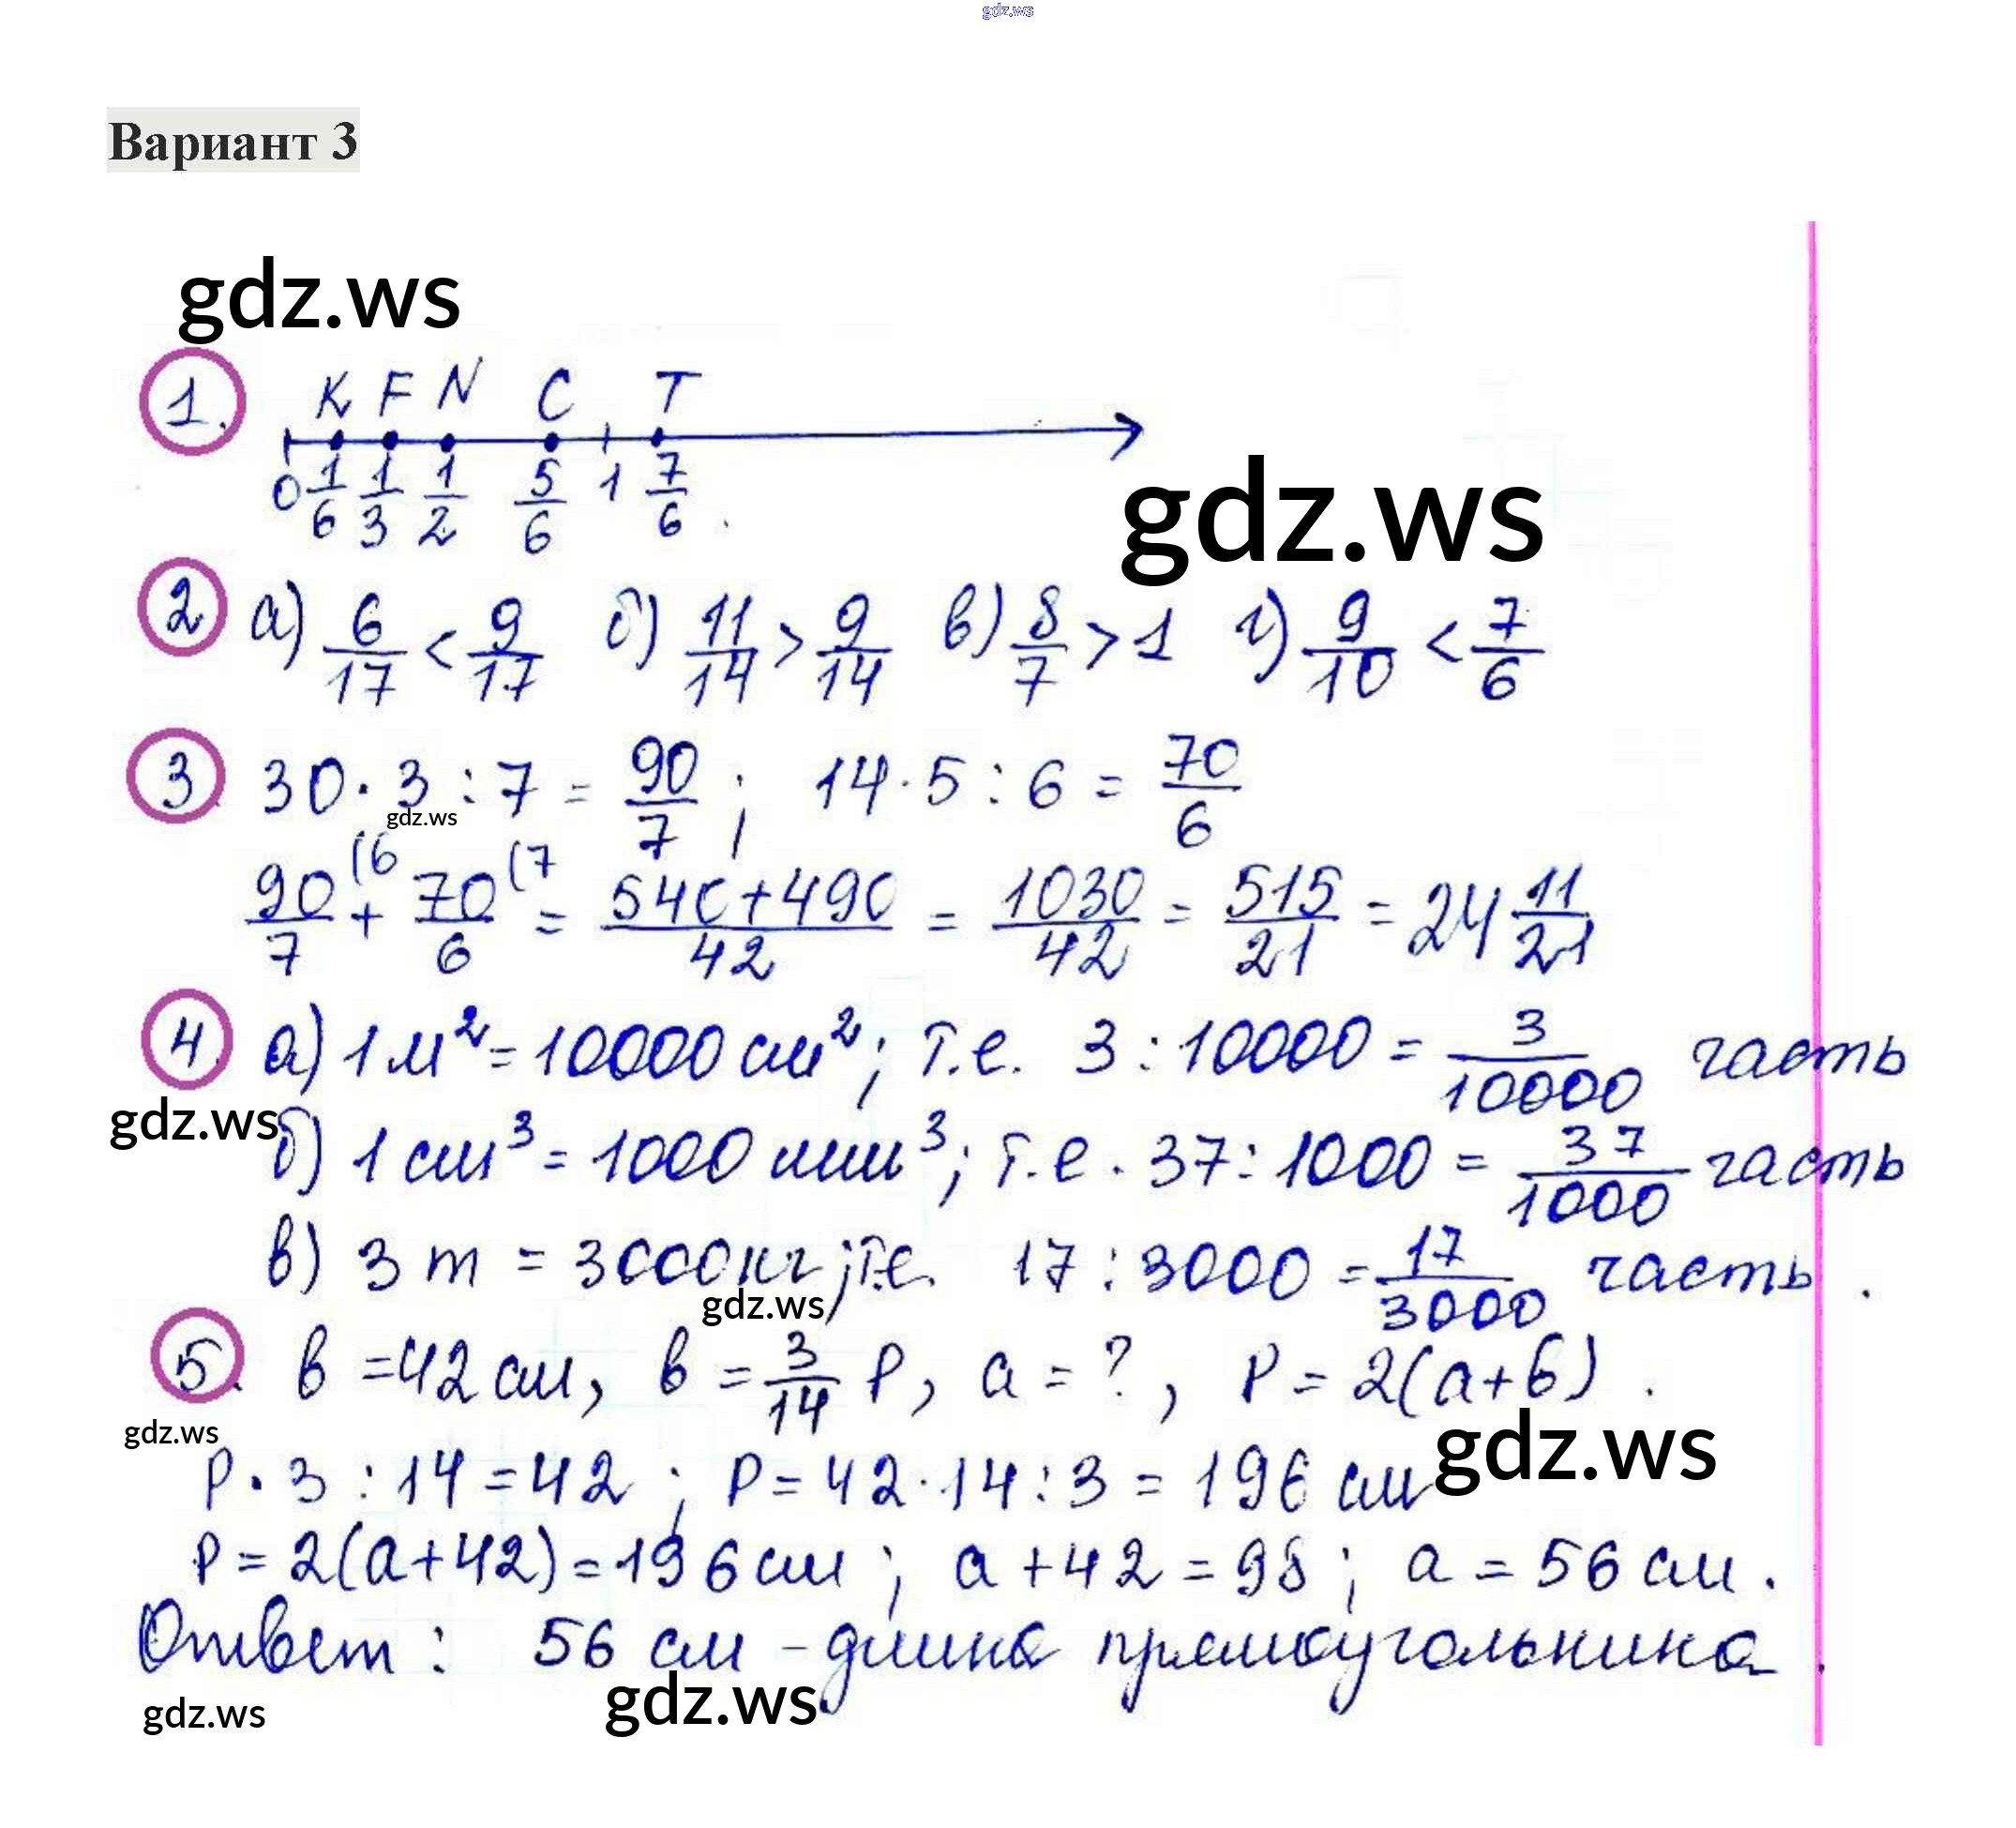 gdz.ws
Вариант 3
gdz.ws
1. K F N C T
0 1/6 1/3 1/2 5/6 1 7/6
gdz.ws
2 а) 6/17 < 9/17 б) 11/14 > 9/14 в) 8/7 > 1 г) 9/10 < 7/6
3. 30 · 3 : 7 = 90/7 ; 14 · 5 : 6 = 70/6
gdz.ws
90/7 (6 + 70/6 (7 = 540+490/42 = 1030/42 = 515/21 = 24 11/21
4. а) 1 м² = 10000 см²; т.е. 3 : 10000 = 3/10000 часть
gdz.ws
б) 1 см³ = 1000 мм³; т.е. 37 : 1000 = 37/1000 часть
в) 3 т = 3000 кг; т.е. 17 : 3000 = 17/3000 часть.
gdz.ws
5. в = 42 см, в = 3/14 P, a = ?, P = 2(a+б).
gdz.ws
gdz.ws
P · 3 : 14 = 42 ; P = 42 · 14 : 3 = 196 см
P = 2(a+42) = 196 см ; a + 42 = 98 ; a = 56 см.
Ответ : 56 см - длина прямоугольника.
gdz.ws
gdz.ws